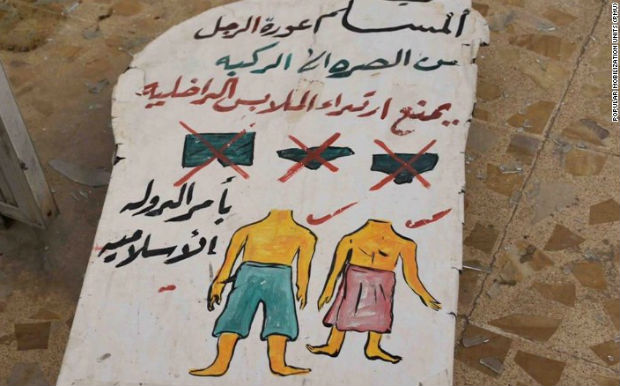 المسلم عورة الرجل
من الصره الا الركبه
يمنع ارتداء الملابس الداخليه
بأمر الدوله
الأسلاميه
POPULAR MOBILIZATION UNITS (PMU)